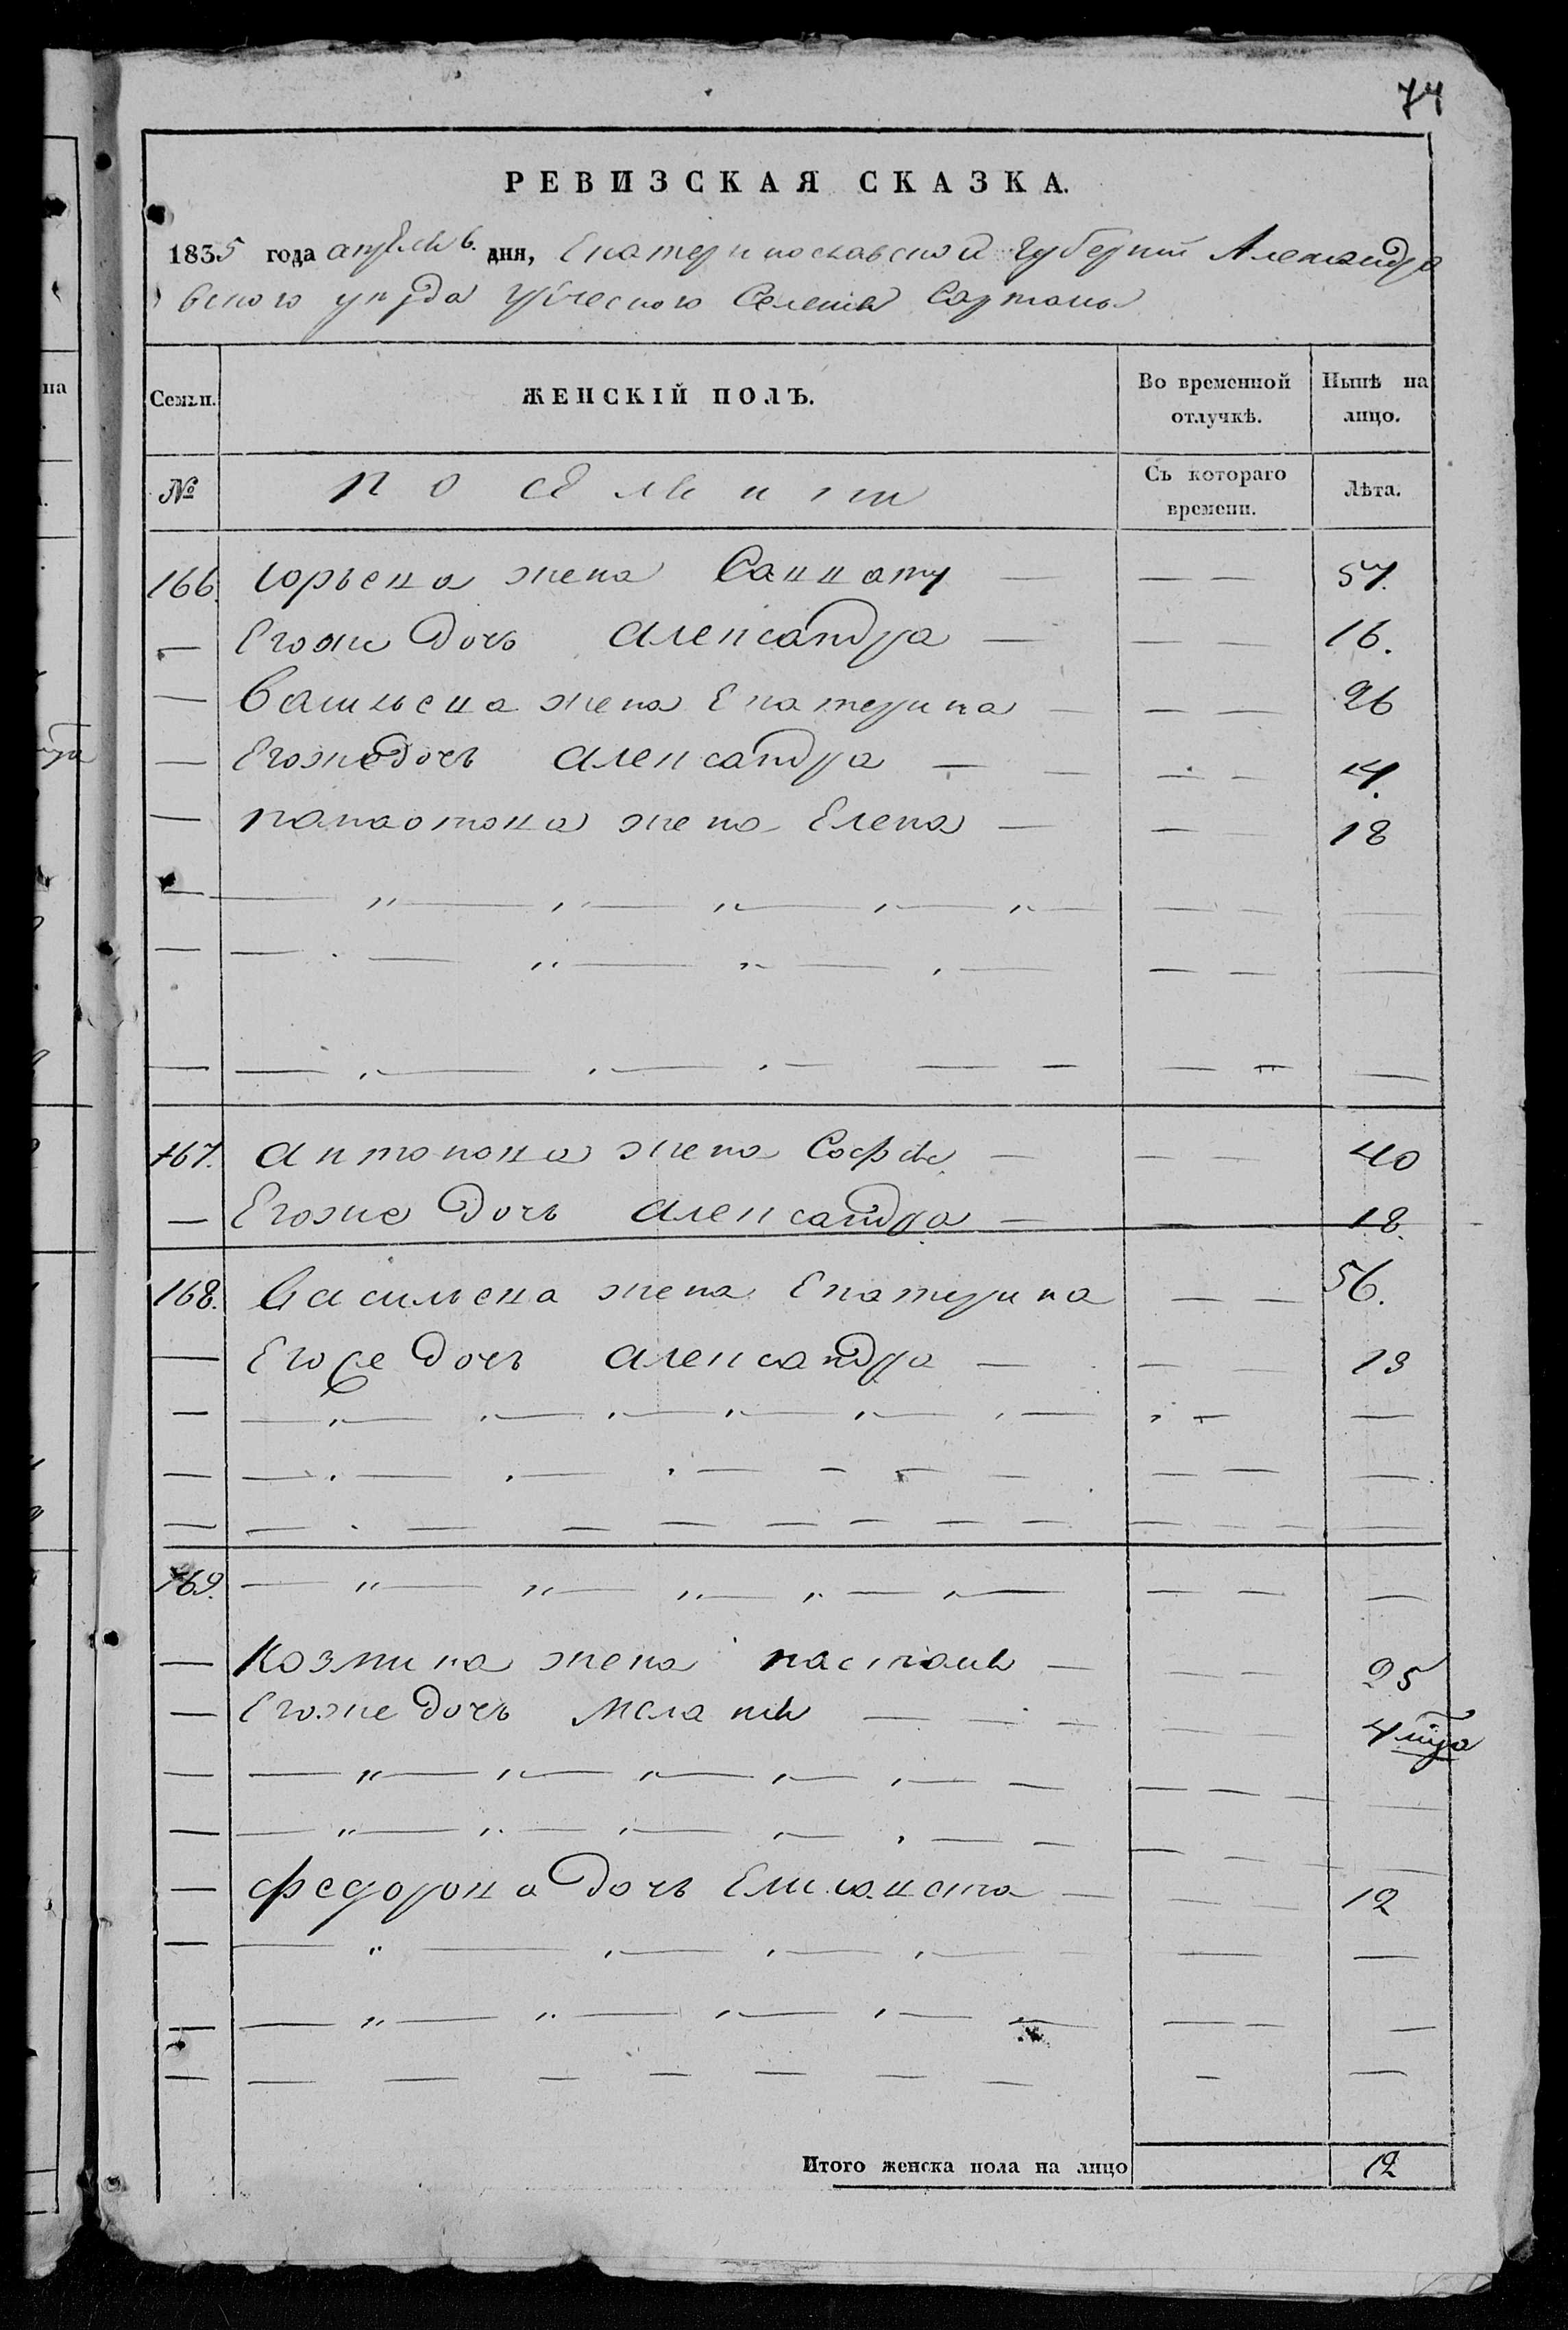 74
РЕВИЗСКАЯ СКАЗКА.
1835 года апреля 6. дня, Екатеринославской Губернии Александро
вского уезда греческого Селения Сартаны
Семьи. ЖЕНСКІЙ ПОЛЪ. Во временной отлучкѣ. Нынѣ на лицо.
№ Поселяне Съ котораго времени. Лѣта.
166. Юрьева жена — — — 57.
— Егоже дочь Александра — — — 16.
— Васильева жена Екатерина — — — 26
— Егоже дочь Александра — — — — 4.
— Панаотова жена Елена — — — 18
167. Антонова жена Софія — — — 40
— Егоже дочь Александра — — 18.
168. Васильева жена Екатерина — — 56.
— Егоже дочь Александра — — — 13
169.
— Козмина жена Настасия — — — 25
— Егоже дочь Мелания — — — — 4 мца
— Федорова дочь Елисавета — — — 12
Итого женска пола на лицо 12